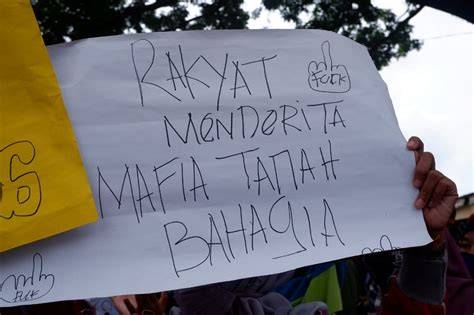 RAKYAT
FUCK
MENDERITA
MAFIA TANAH
BAHAGIA
FUCK